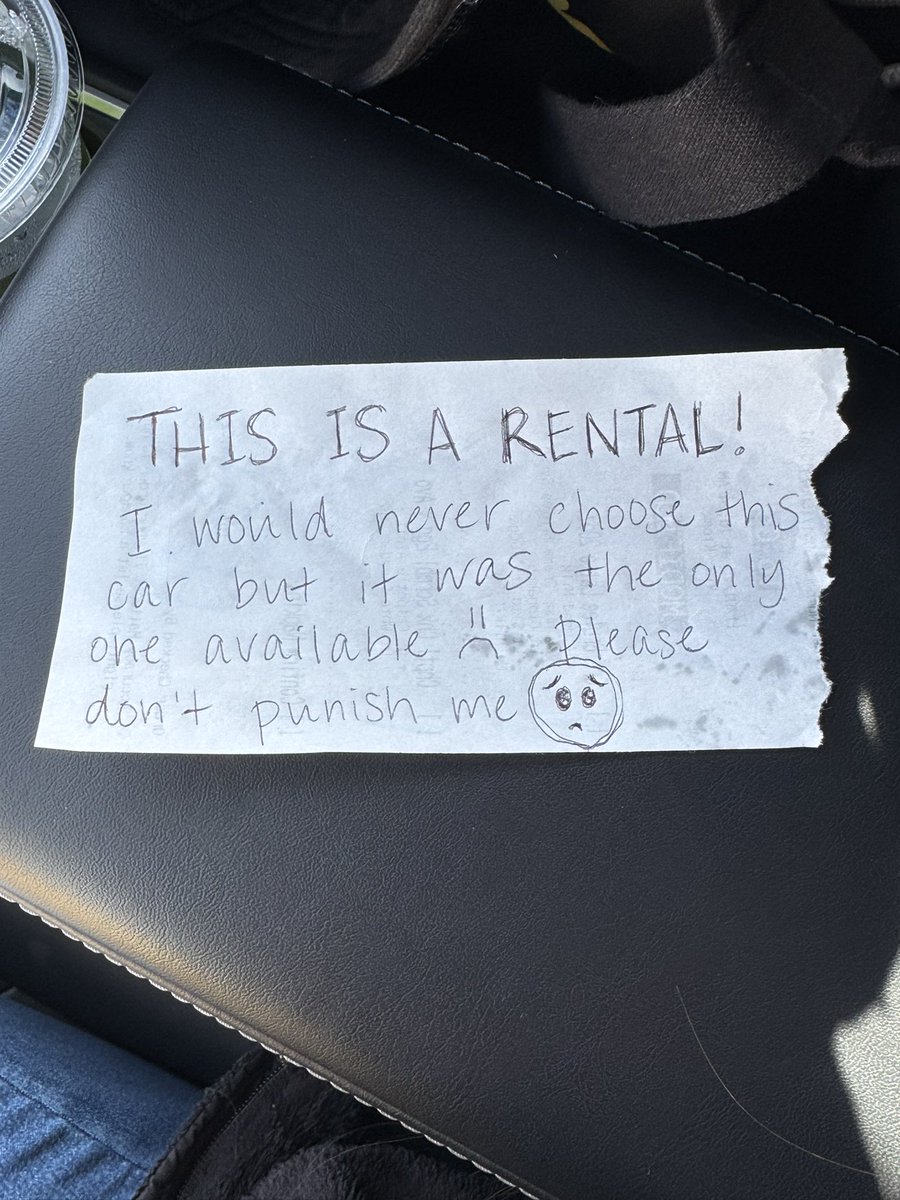 THIS IS A RENTAL!
I would never choose this
car but it was the only
one available :( Please
don't punish me